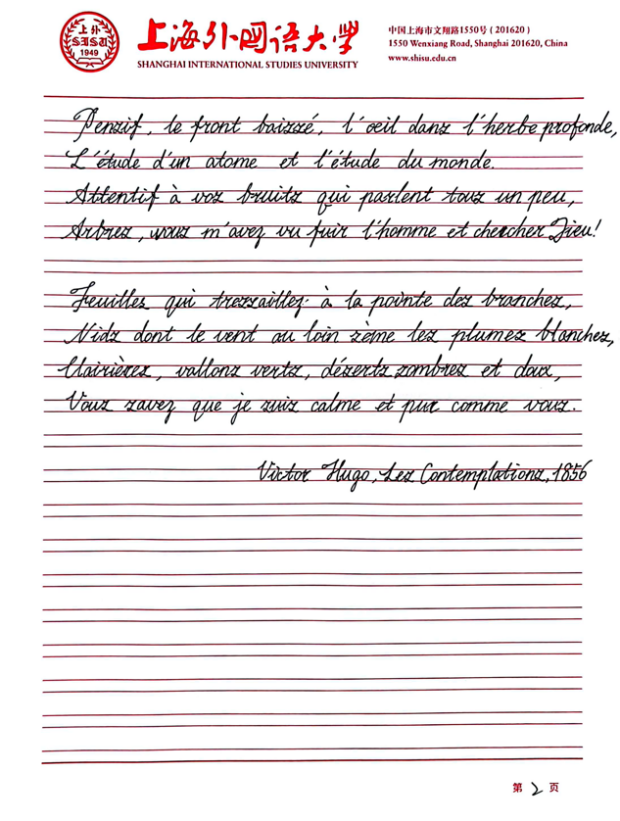 上外
SISU
1949
上海外国语大学
SHANGHAI INTERNATIONAL STUDIES UNIVERSITY
中国上海市文翔路1550号(201620)
1550 Wenxiang Road, Shanghai 201620, China
www.shisu.edu.cn
Pensif, le front baissé, l'oeil dans l'herbe profonde,
L'étude d'un atome et l'étude du monde.
Attentif à vos bruits qui parlent tous un peu,
Arbres, vous m'avez vu fuir l'homme et chercher Dieu!
Feuilles qui tressaillez à la pointe des branches,
Nids dont le vent au loin sème les plumes blanches,
Clairières, vallons verts, déserts sombres et doux,
Vous savez que je suis calme et pur comme vous.
Victor Hugo, Les Contemplations, 1856
第 2 页